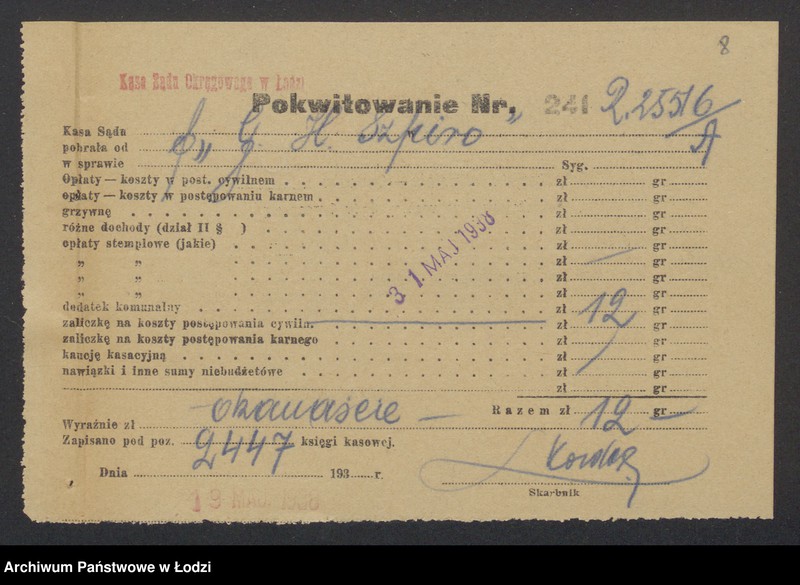 8
Kasa Sądu Okręgowego w Łodzi
Pokwitowanie Nr. 241
Kasa Sądu
pobrała od G. H. Szpiro
w sprawie Syg.
Opłaty — koszty w post. cywilnem zł gr
opłaty — koszty w postępowaniu karnem zł gr
grzywnę zł gr
różne dochody (dział II § ) zł gr
opłaty stemplowe (jakie) zł gr
„ „ zł gr
„ „ zł gr
„ „ zł gr
31 MAJ 1938
dodatek komunalny zł gr
zaliczkę na koszty postępowania cywiln. zł 12 gr
zaliczkę na koszty postępowania karnego zł gr
kaucję kasacyjną zł gr
nawiązki i inne sumy niebudżetowe zł gr
zł gr
Razem zł 12 gr —
Wyraźnie zł
Zapisano pod poz. 2447 księgi kasowej.
Dnia 193 r.
19 MAJ 1938
Skarbnik
Archiwum Państwowe w Łodzi